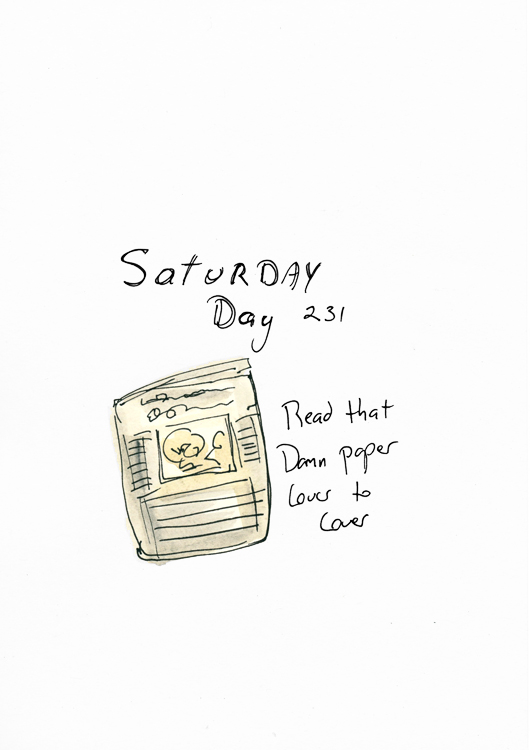 SATURDAY
Day 231
Read that
Damn paper
Cover to
Cover